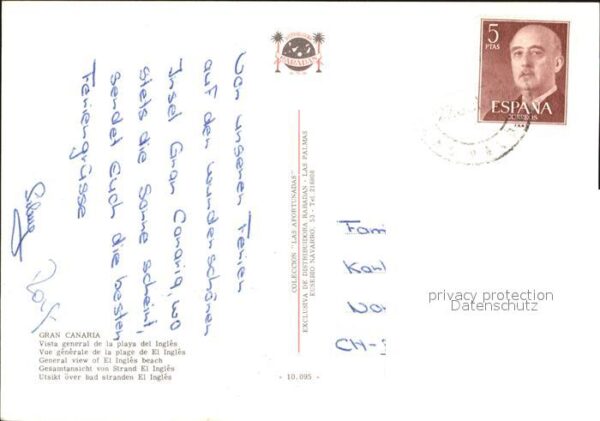 Von unseren Ferien
auf den wunderschönen
Insel Gran Canaria, wo
stets die Sonne scheint,
sendet Euch die besten
Feriengrüsse
GRAN CANARIA
Vista general de la playa del Inglés
Vue générale de la plage de El Inglés
General view of El Inglés beach
Gesamtansicht von Strand El Inglés
Utsikt över bad stranden El Inglés
RABADAN
COLECCION "LAS AFORTUNADAS"
EXCLUSIVA DE DISTRIBUIDORA RABADAN - LAS PALMAS
EUSEBIO NAVARRO, 53 - Tel 216808
- 10.095 -
5
PTAS
ESPAÑA
CORREOS
Fam
CH-
privacy protection
Datenschutz